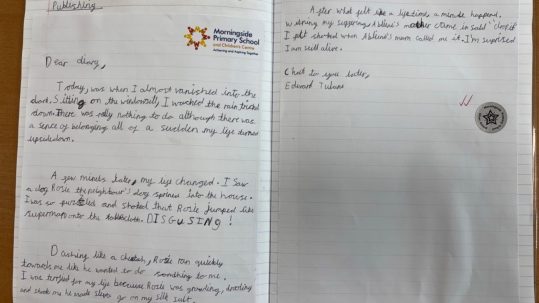 Publishing
Morningside
Primary School
and Children's Centre
Achieving and Aspiring Together
Dear diary,
Today, was when I almost vanished into the
dark. Siting on the windowsill, I watched the rain trickle
down. There was really nothing to do although there was
a sence of belonging all of a sudden my life turned
upsidedown.
A few minets later, my life changed. I saw
a dog Rosie the neighbour's dog sprined into the house.
I was so puzzled and shoked that Rosie jumped like
superman onto the tablecloth. DISGUSING!
Dashing like a cheetah, Rosie ran quickly
towards me like he wanted to do something to me.
I was terrified for my life because Rosie was growling, drooling
and shook me he made slipes go on my silk suit.
After what felt like a lifetime, a minute happend.
Wathing my suffering, Abilene's mother came in said "drop it"
I felt shocked when Abilene's mom called me it. I'm surprised
I am still alive.
Chat to you later,
Edward Tulane